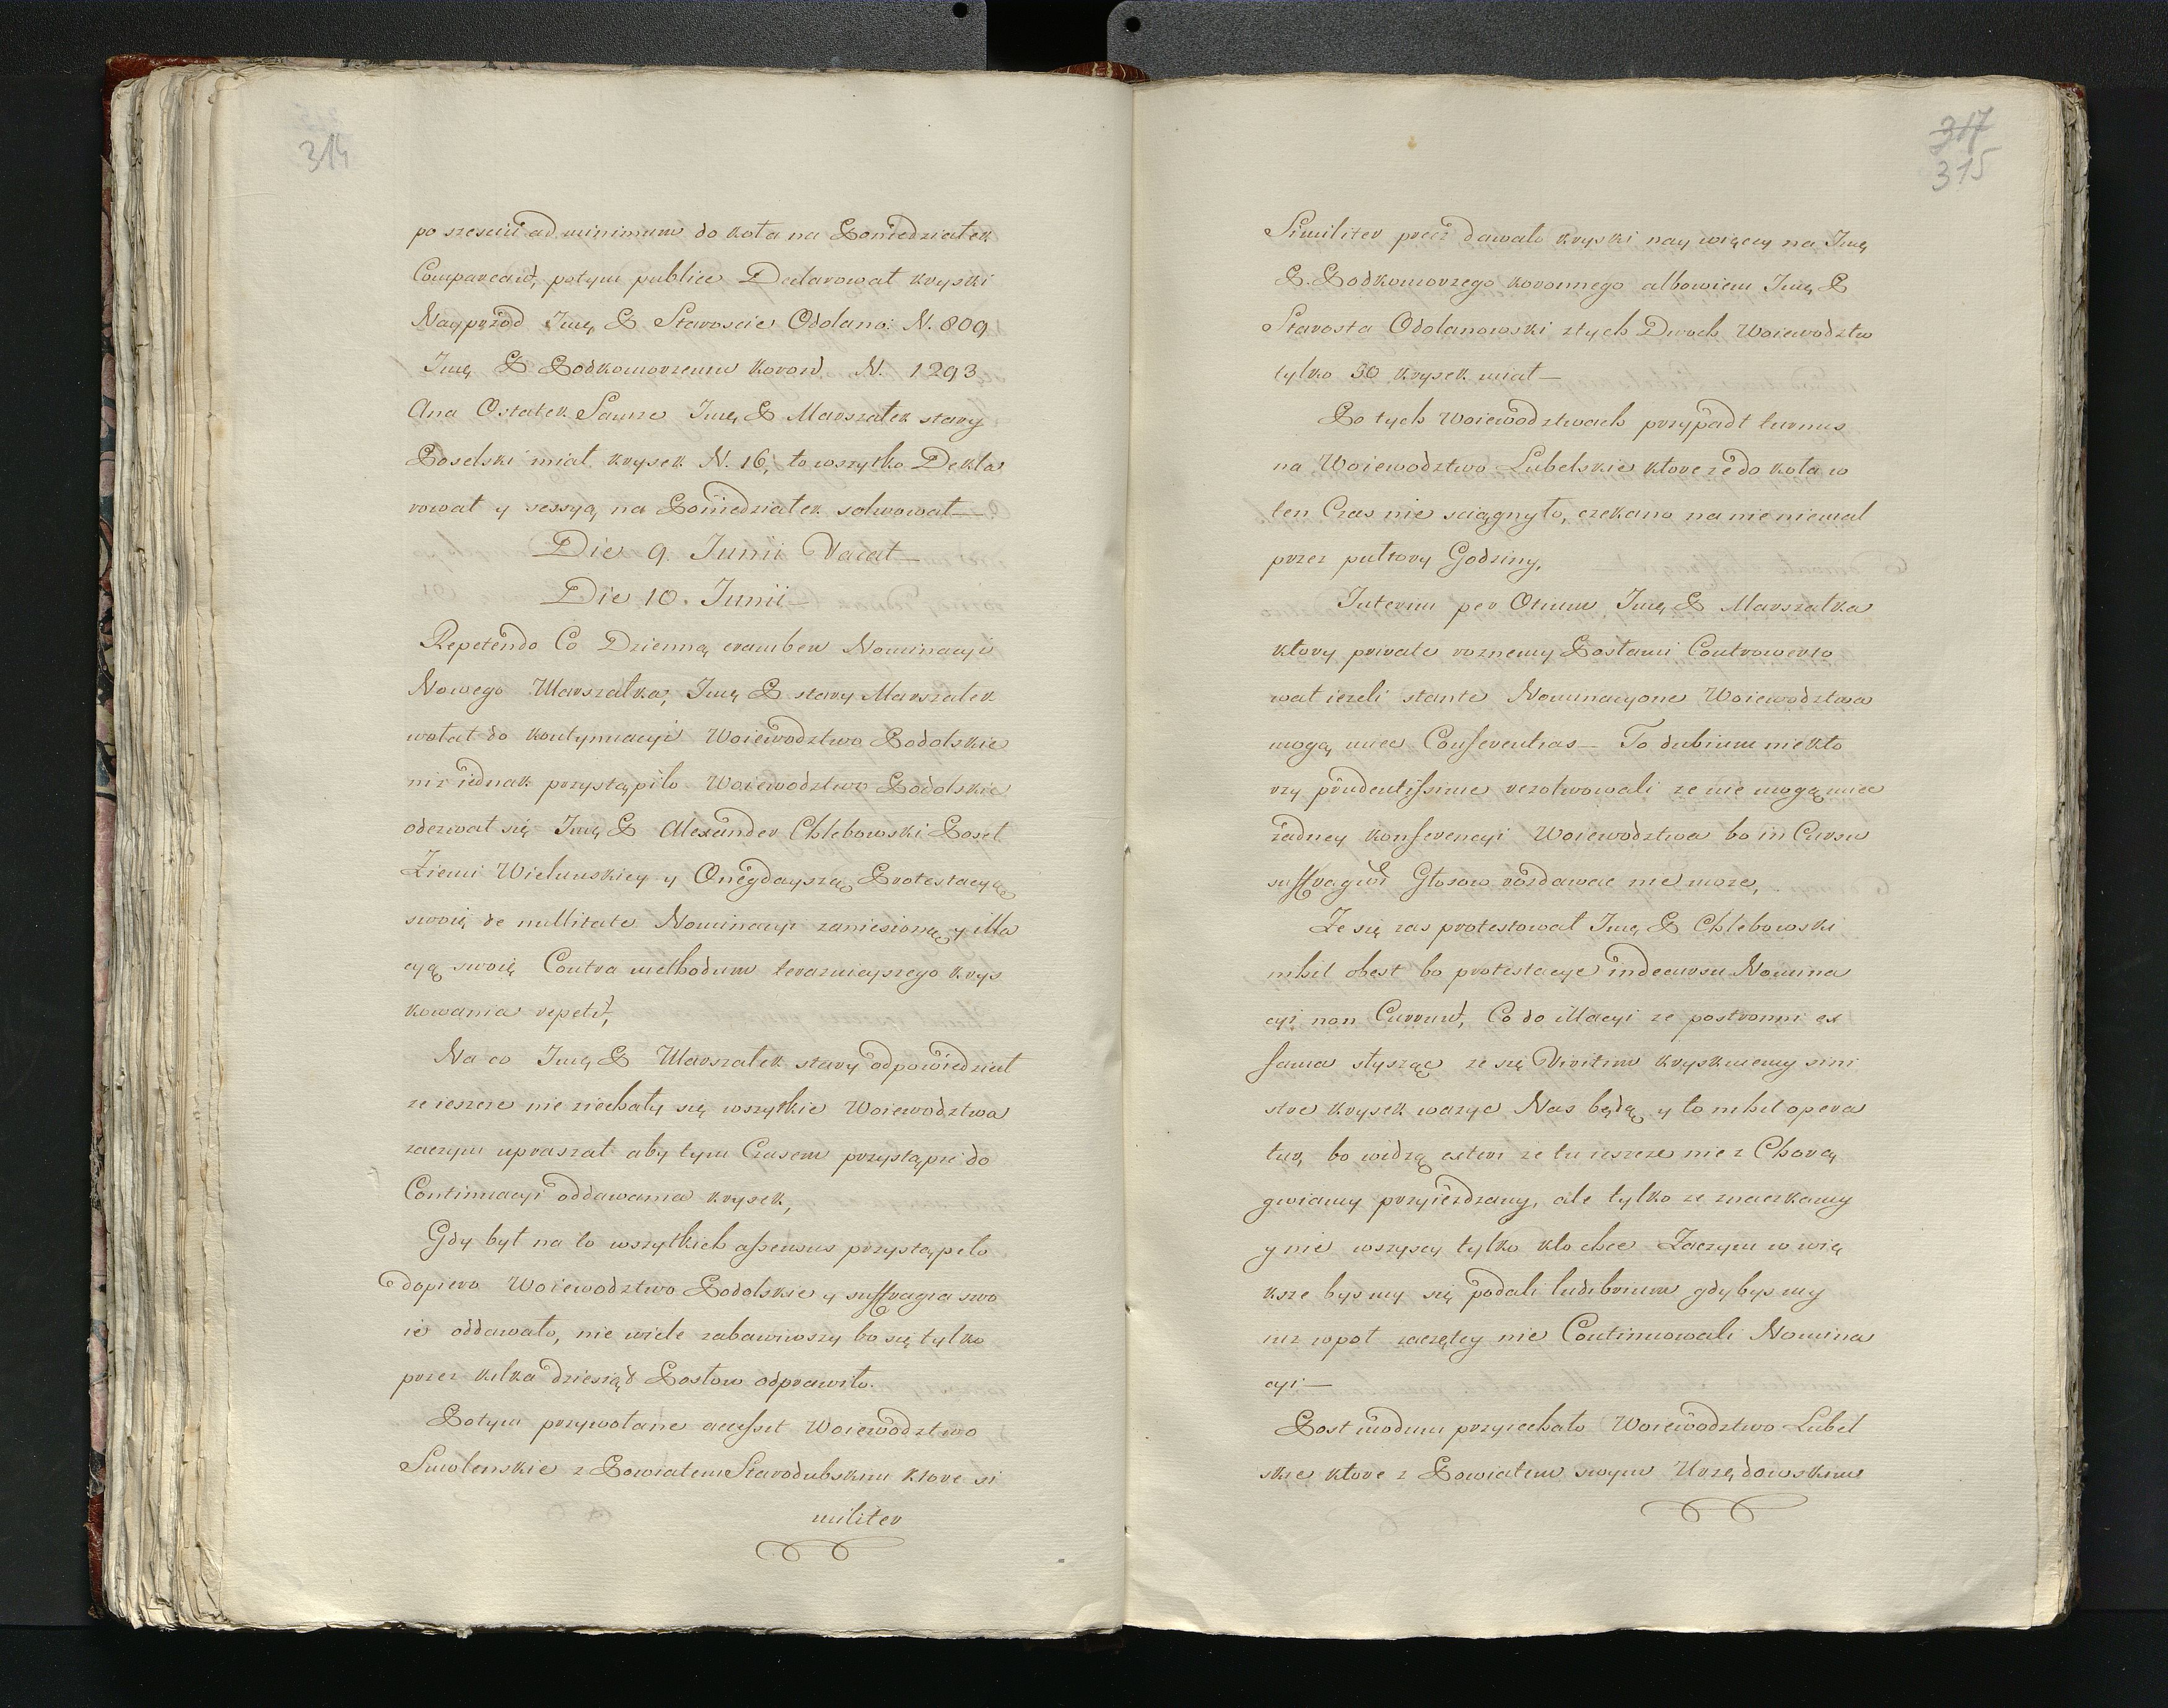 314
po szesciu ad minimum do koła na Poniedziałek
Compareant, potym publice Declarował kryski
Nayprzod Jmę P Staroscie Odolano: N. 809
Jmę P Podkomorzemu koron. N. 1293
Ana Ostatek Samże Jmę P Marszałek stary
Poselski miał krysek N. 16, to wszytko Dekla
rował y sessyą na Poniedziałek solwował—
Die 9. Junii Vacat—
Die 10. Junii—
Repetendo Co Dzienną cramben Nominacyi
Nowego Marszałka, Jmę P stary Marszałek
wołał do kontynuacyi Woiewodztwo Podolskie
niż iednak przystąpiło Woiewodztwo Podolskie
odezwał się Jmę P Alexander Chlebowski Poseł
Ziemi Wieluńskiey y Onegdayszą Protestacyą
swoię de nullitate Nominacyi zaniesioną y illa
cyą swoię Contra methodum teraznieyszego krys
kowania repetit,
Na co Jmę P Marszałek stary odpowiedział
ze ieszcze nie ziechały się wszytkie Woiewodztwa
zaczym upraszał aby tym Czasem przystąpić do
Continuacyi oddawania krysek,
Gdy był na to wszytkich assensus przystąpiło
dopiero Woiewodztwo Podolskie y suffragia swo
ie oddawało, nie wiele zabawiwszy bo się tylko
przez kilka dziesiąd Posłow odprawiło.
Potym przywołane accessit Woiewodztwo
Smolenskie z Powiatem Starodubskim ktore si
militer
317
315
Similiter precz dawało kryski nay więcey na Jmę
P. Podkomorzego koronnego albowiem Jmę P
Starosta Odolanowski z tych Dwoch Woiewodztw
tylko 30 krysek miał—
Po tych Woiewodztwach przypadł turnus
na Woiewodztwo Lubelskie ktore że do koła w
ten Czas nie sciągnyło, czekano na nie niemal
przez pułtory Godziny,
Interim per Otium Jmę P Marszałka
ktory private roznemy Posłami Controwerto
wał iezeli stante Nominacyone Woiewodztwa
mogą miec Conferentias— To dubium niekto
rzy prudentissime rezolwowali ze nie mogą miec
żadney konferencyi Woiewodztwa bo in Cursu
suffragii Głosow rozdawac nie moze,
Ze się zas protestował Jmę P Chlebowski
nihil obest bo protestacye in decursu Nomina
cyi non Currunt, Co do illacyi ze postronni ex
fama słysząc ze się Viritim kryskuiemy sini
stre krysek wazyc Nas będą y to nihil opera
tur, bo widzą exteri ze tu ieszcze nie z Chorą
gwiamy przyiezdzamy, ale tylko ze znaczkamy
y nie wszyscy tylko kto chce Zaczym w wię
ksze bysmy się podali ludibrium gdybysmy
iuz wpoł zaczętey nie Continuowali Nomina
cyi—
Post modum przyiechało Woiewodztwo Lubel
skie ktore z Powiatem swym Urzędowskim